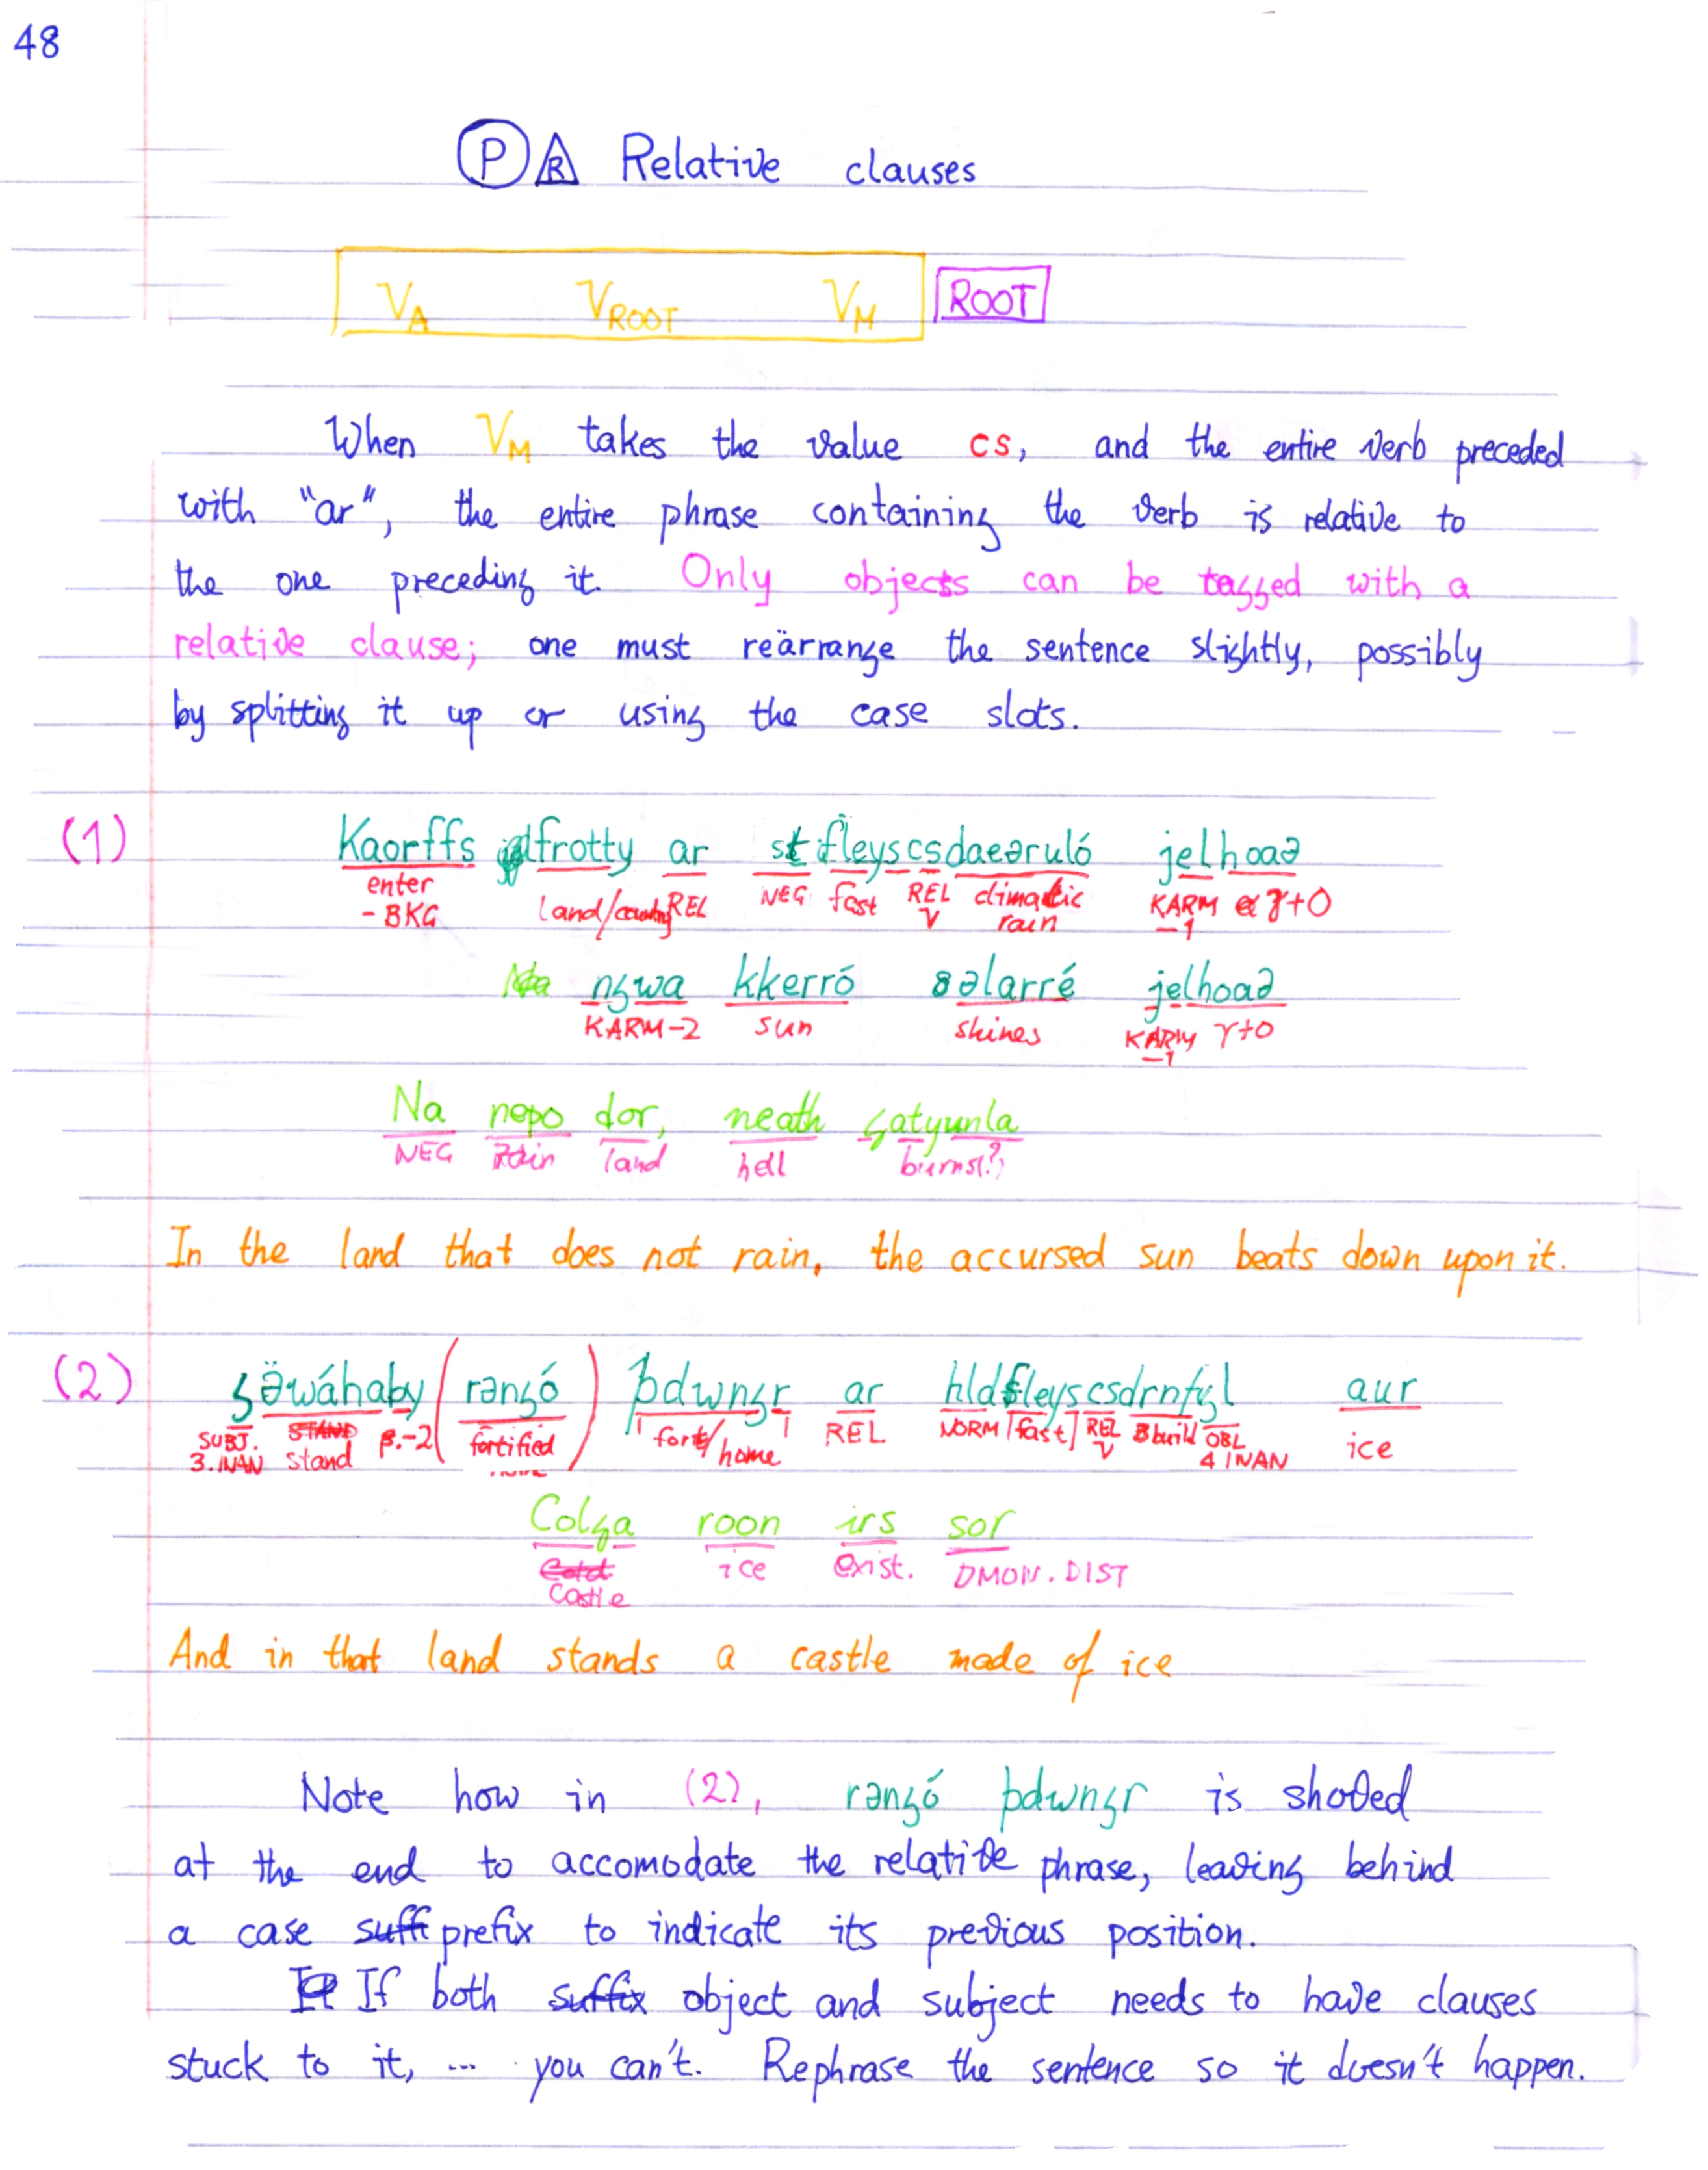 48
P R Relative clauses
V_A V_ROOT V_M ROOT
When V_M takes the value cs, and the entire verb preceded
with "ar", the entire phrase containing the verb is relative to
the one preceding it. Only objects can be tagged with a
relative clause; one must reärrange the sentence slightly, possibly
by splitting it up or using the case slots.
(1) Kaorffs frotty ar st fleyscsdaeəruló jelhoaə
enter land/country REL NEG fast REL climatic KARM γ+0
-BKG V rain -1
ngwa kkerró səlarré jelhoaə
KARM-2 sun shines KARM γ+0
-1
Na nepo dor, neath gatyunla
NEG rain land hell burns(?)
In the land that does not rain, the accursed sun beats down upon it.
(2) gəwáhaby (rəngó) þdwngr ar hldfleyscsdrnfgl aur
SUBJ. STAND β.-2 fortified fort/home REL NORM [fast] REL build OBL ice
3.INAN stand V 4 INAN
Colga roon irs sor
Cold ice exist. DMON.DIST
Castle
And in that land stands a castle made of ice
Note how in (2), rəngó þdwngr is shoved
at the end to accomodate the relative phrase, leaving behind
a case suff prefix to indicate its previous position.
If both suffix object and subject needs to have clauses
stuck to it, ... you can't. Rephrase the sentence so it doesn't happen.